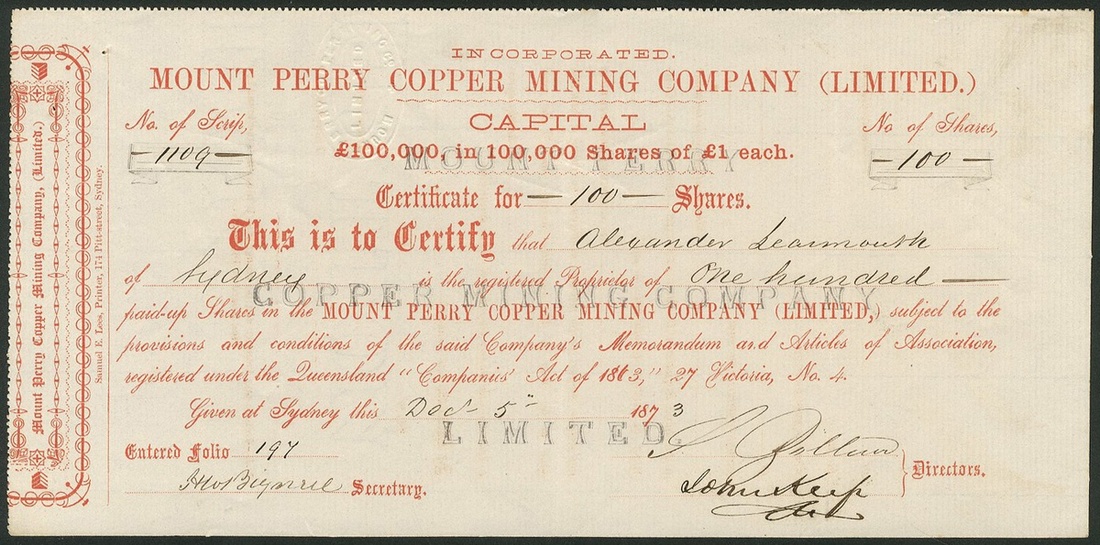 INCORPORATED.
MOUNT PERRY COPPER MINING COMPANY (LIMITED.)
CAPITAL
£100,000, in 100,000 Shares of £1 each.
No. of Scrip,
1109
No of Shares,
100
MOUNT PERRY
Certificate for 100 Shares.
This is to Certify that Alexander Learmonth
of Sydney is the registered Proprietor of One hundred
COPPER MINING COMPANY
paid-up Shares in the MOUNT PERRY COPPER MINING COMPANY (LIMITED,) subject to the
provisions and conditions of the said Company's Memorandum and Articles of Association,
registered under the Queensland "Companies' Act of 1863," 27 Victoria, No. 4.
Given at Sydney this Decr 5th 1873
LIMITED.
Entered Folio 197
Secretary.
John Keep
Directors.
Mount Perry Copper Mining Company, (Limited.)
Samuel E. Lees, Printer, 174 Pitt-street, Sydney.